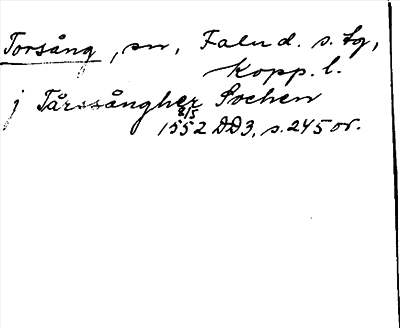 Torsång, sn, Falu d. s. tg,
Kopp. l.
j Tårssångher Sochen
8/5
1552 DD3, s. 245 or.